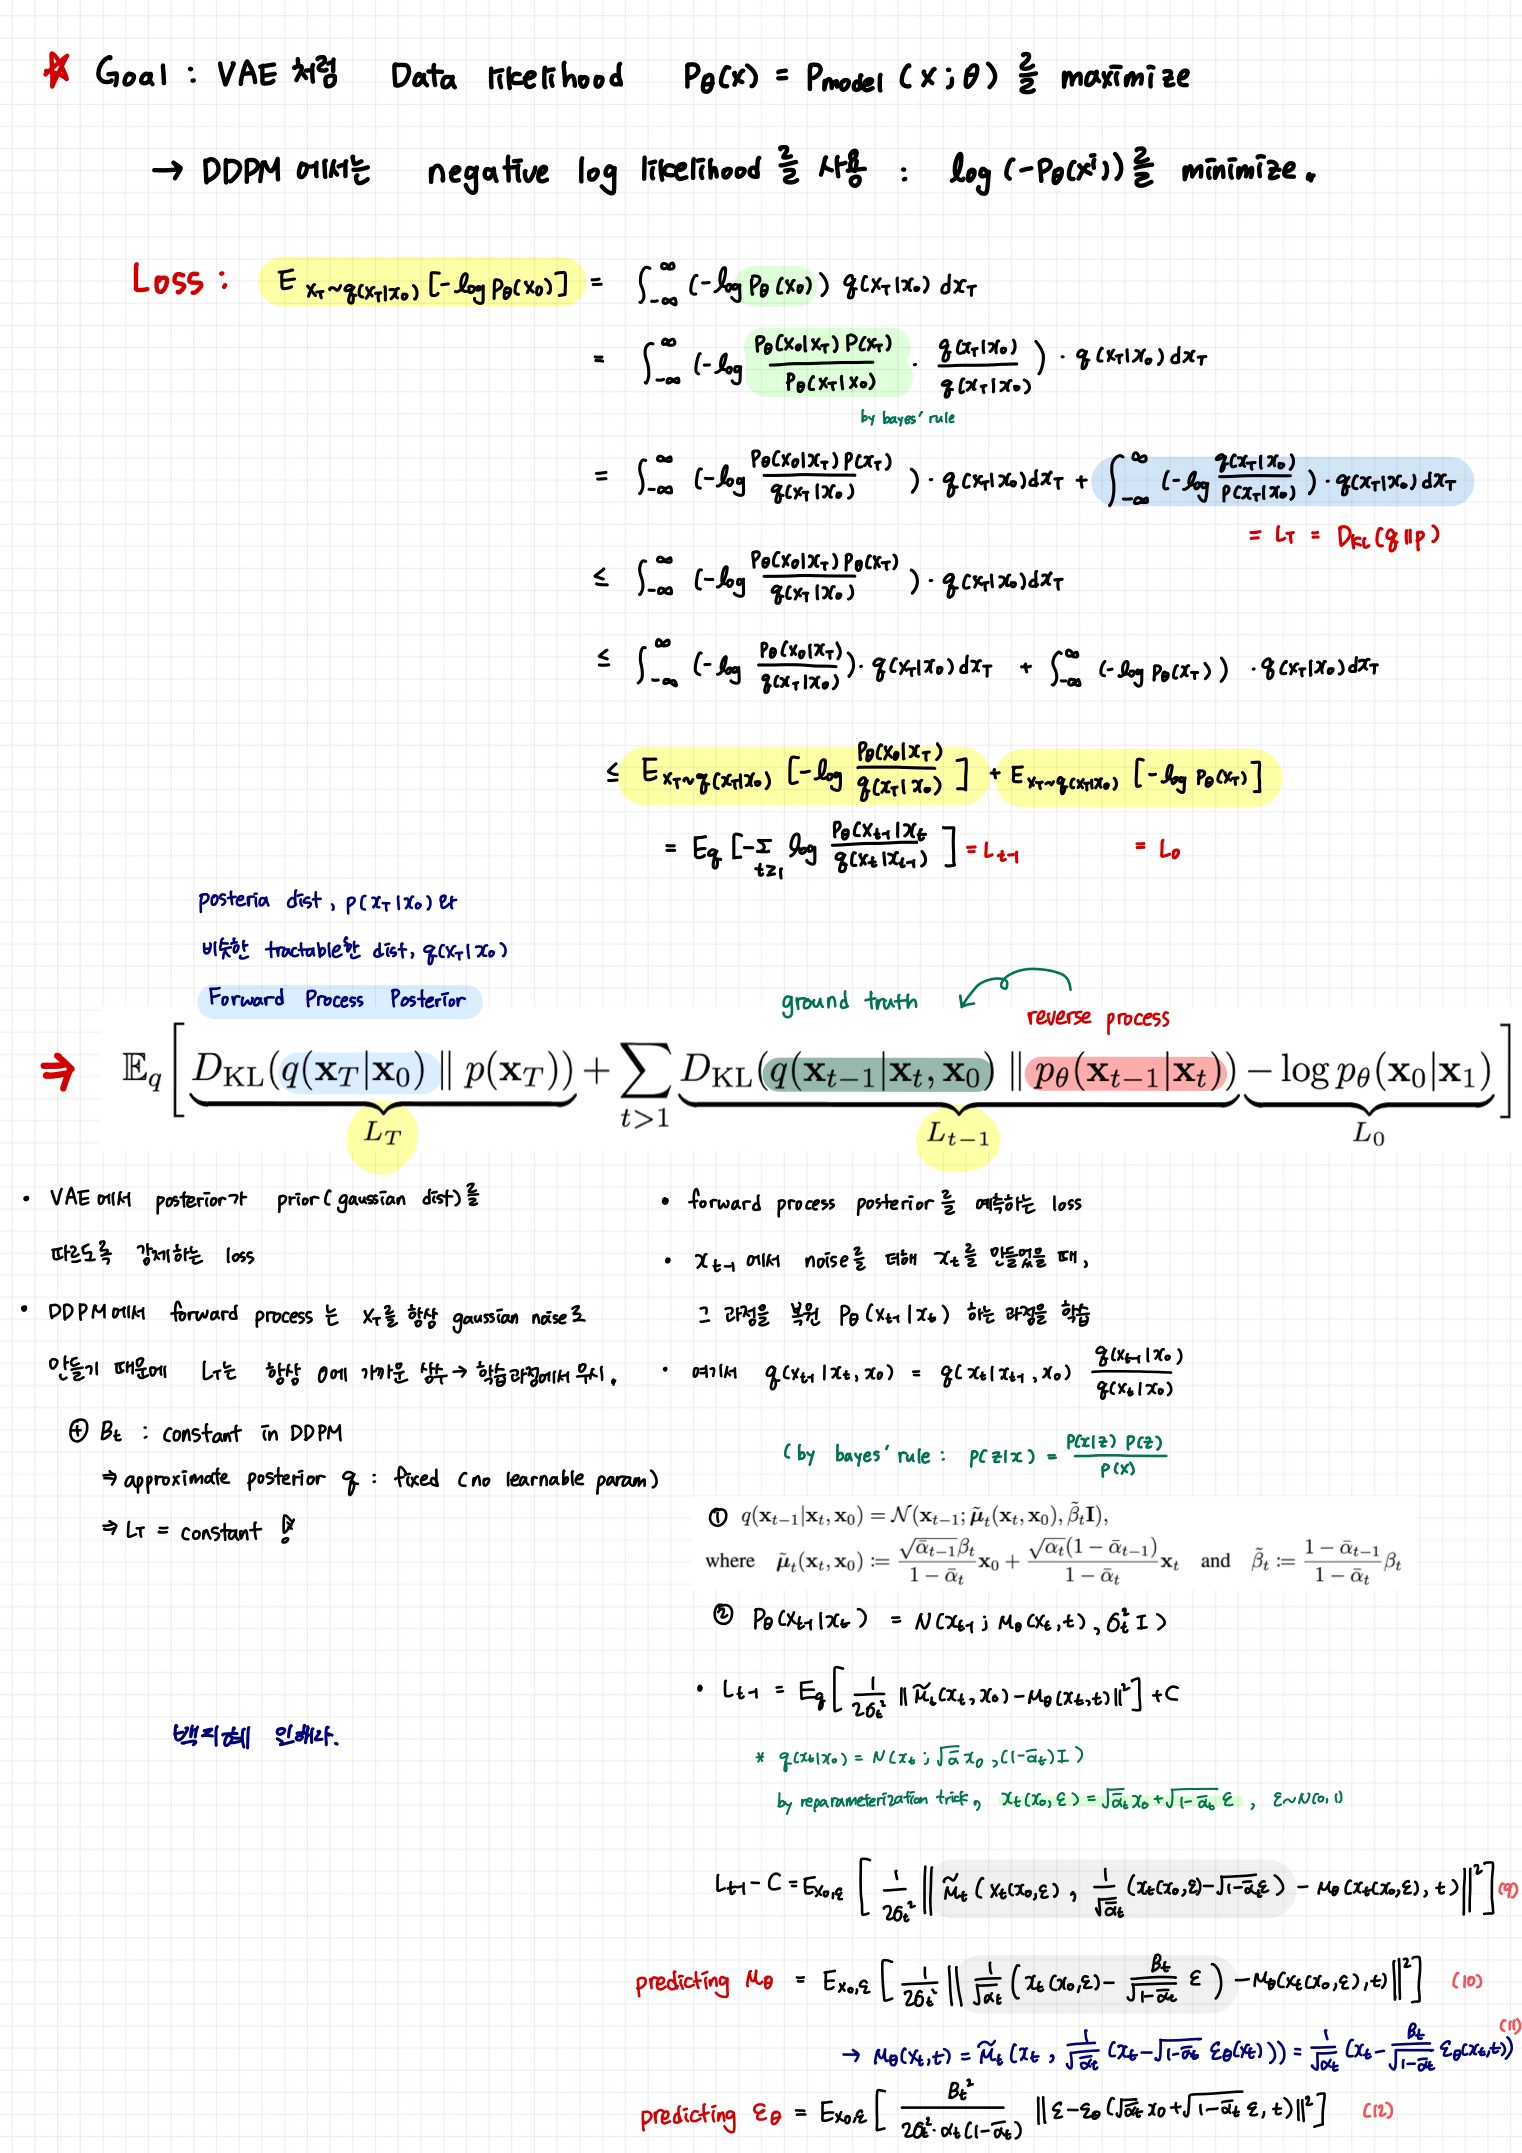 ☆ Goal : VAE 처럼 Data likelihood Pθ(x) = Pmodel (x ; θ) 를 maximize
→ DDPM 에서는 negative log likelihood를 사용 : log (-Pθ(xⁱ))를 minimize.
Loss : E x_T~q(x_T|x_0) [-log Pθ(x_0)] = ∫_{-∞}^{∞} (-log Pθ(x_0)) q(x_T|x_0) dx_T
= ∫_{-∞}^{∞} (-log Pθ(x_0|x_T) P(x_T) / Pθ(x_T|x_0) · q(x_T|x_0) / q(x_T|x_0) ) · q(x_T|x_0) dx_T
by bayes' rule
= ∫_{-∞}^{∞} (-log Pθ(x_0|x_T) P(x_T) / q(x_T|x_0) ) · q(x_T|x_0) dx_T + ∫_{-∞}^{∞} (-log q(x_T|x_0) / P(x_T|x_0) ) · q(x_T|x_0) dx_T
= L_T = D_KL (q || p)
≤ ∫_{-∞}^{∞} (-log Pθ(x_0|x_T) Pθ(x_T) / q(x_T|x_0) ) · q(x_T|x_0) dx_T
≤ ∫_{-∞}^{∞} (-log Pθ(x_0|x_T) / q(x_T|x_0) ) · q(x_T|x_0) dx_T + ∫_{-∞}^{∞} (-log Pθ(x_T)) · q(x_T|x_0) dx_T
≤ E x_T~q(x_T|x_0) [-log Pθ(x_0|x_T) / q(x_T|x_0) ] + E x_T~q(x_T|x_0) [-log Pθ(x_T)]
= E_q [-Σ_{t≥1} log Pθ(x_{t-1}|x_t / q(x_t|x_{t-1}) ] = L_{t-1} = L_0
posteria dist, P(x_T|x_0)와
비슷한 tractable한 dist, q(x_T|x_0)
Forward Process Posterior
ground truth
reverse process
⇒ 𝔼_q [ D_KL(q(x_T|x_0) ∥ p(x_T)) + Σ_{t>1} D_KL(q(x_{t-1}|x_t, x_0) ∥ p_θ(x_{t-1}|x_t)) − log p_θ(x_0|x_1) ]
L_T L_{t-1} L_0
• VAE에서 posterior가 prior(gaussian dist)를
따르도록 강제하는 loss
• DDPM에서 forward process 는 x_T를 항상 gaussian noise로
만들기 때문에 L_T는 항상 0에 가까운 상수 → 학습과정에서 무시.
⊕ B_t : constant in DDPM
⇒ approximate posterior q : fixed (no learnable param)
⇒ L_T = constant
백지혜 인해라.
• forward process posterior를 예측하는 loss
• x_{t-1} 에서 noise를 더해 x_t를 만들었을 때,
그 과정을 복원 Pθ(x_{t-1}|x_t) 하는 과정을 학습
• 여기서 q(x_{t-1}|x_t, x_0) = q(x_t|x_{t-1}, x_0) q(x_{t-1}|x_0) / q(x_t|x_0)
(by bayes' rule : P(z|x) = P(x|z) P(z) / P(x)
① q(x_{t-1}|x_t, x_0) = N(x_{t-1}; μ̃_t(x_t, x_0), β̃_t I),
where μ̃_t(x_t, x_0) := √ᾱ_{t-1} β_t / (1 − ᾱ_t) x_0 + √α_t(1 − ᾱ_{t-1}) / (1 − ᾱ_t) x_t and β̃_t := (1 − ᾱ_{t-1}) / (1 − ᾱ_t) β_t
② Pθ(x_{t-1}|x_t) = N(x_{t-1} ; Mθ(x_t, t), σ_t² I)
• L_{t-1} = E_q [ 1/2σ_t² || M̃_t(x_t, x_0) - Mθ(x_t, t) ||² ] + C
* q(x_t|x_0) = N(x_t ; √ᾱ x_0 , (1-ᾱ_t) I)
by reparameterization trick, x_t(x_0, ε) = √ᾱ_t x_0 + √1-ᾱ_t ε , ε~N(0, 1)
L_{t-1} - C = E_{x_0,ε} [ 1/2σ_t² || M̃_t (x_t(x_0, ε) , 1/√ᾱ_t (x_t(x_0, ε) - √1-ᾱ_t ε) - Mθ(x_t(x_0, ε), t) ||² ] (9)
predicting Mθ = E_{x_0,ε} [ 1/2σ_t² || 1/√α_t ( x_t(x_0, ε) - B_t/√1-ᾱ_t ε ) - Mθ(x_t(x_0, ε), t) ||² ] (10)
→ Mθ(x_t, t) = M̃_t (x_t , 1/√ᾱ_t (x_t - √1-ᾱ_t εθ(x_t))) = 1/√α_t (x_t - B_t/√1-ᾱ_t εθ(x_t, t)) (11)
predicting εθ = E_{x_0,ε} [ B_t² / 2σ_t² · α_t (1-ᾱ_t) || ε - εθ (√ᾱ_t x_0 + √1-ᾱ_t ε, t) ||² ] (12)